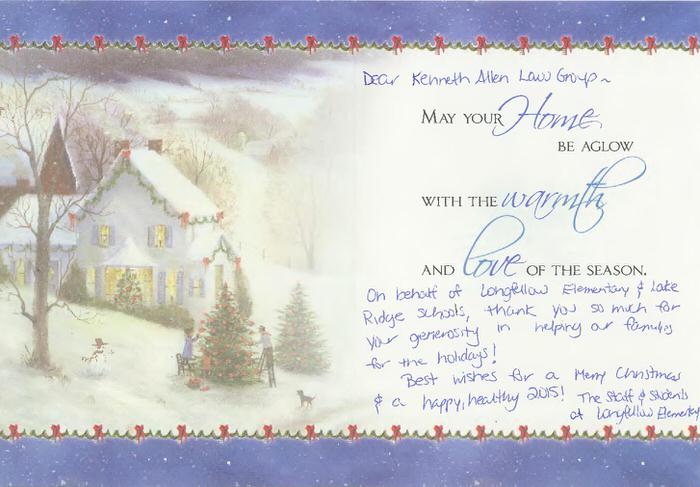 Dear Kenneth Allen Law Group~
MAY YOUR Home
BE AGLOW
WITH THE warmth
AND love OF THE SEASON.
On behalf of Longfellow Elementary & Lake
Ridge schools, thank you so much for
your generosity in helping our families
for the holidays!
Best wishes for a Merry Christmas
& a happy, healthy 2015! The Staff & Students
at Longfellow Elementary